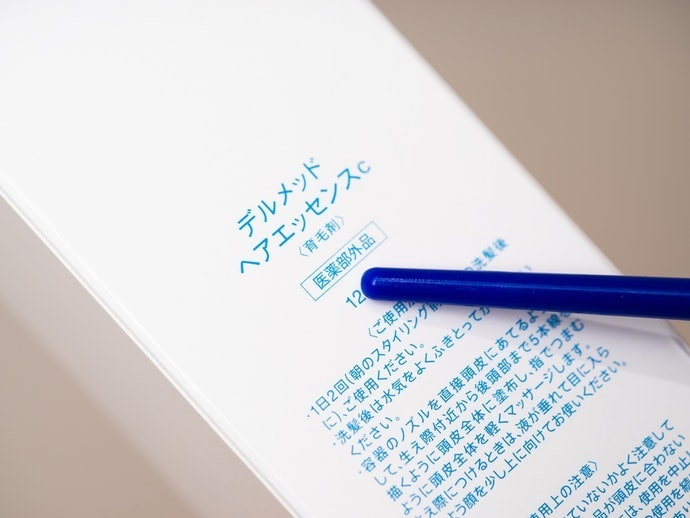 デルメッド
ヘアエッセンスC
〈育毛剤〉
医薬部外品
12
〈ご使用
・1日2回(朝のスタイリング前 の洗髪後
に)、ご使用ください。
・洗髪後は水気をよくふきとってか
ください。
・容器のノズルを直接頭皮にあてるよ
して、生え際付近から後頭部まで5本線を
描くように頭皮全体に塗布し、指でつまむ
ように頭皮全体を軽くマッサージします。
え際につけるときは、液が垂れて目に入ら
よう顔を少し上に向けてお使いください。
使用上の注意〉
ていないかよく注意して
品が頭皮に合わない
は、使用を中止
使用を続